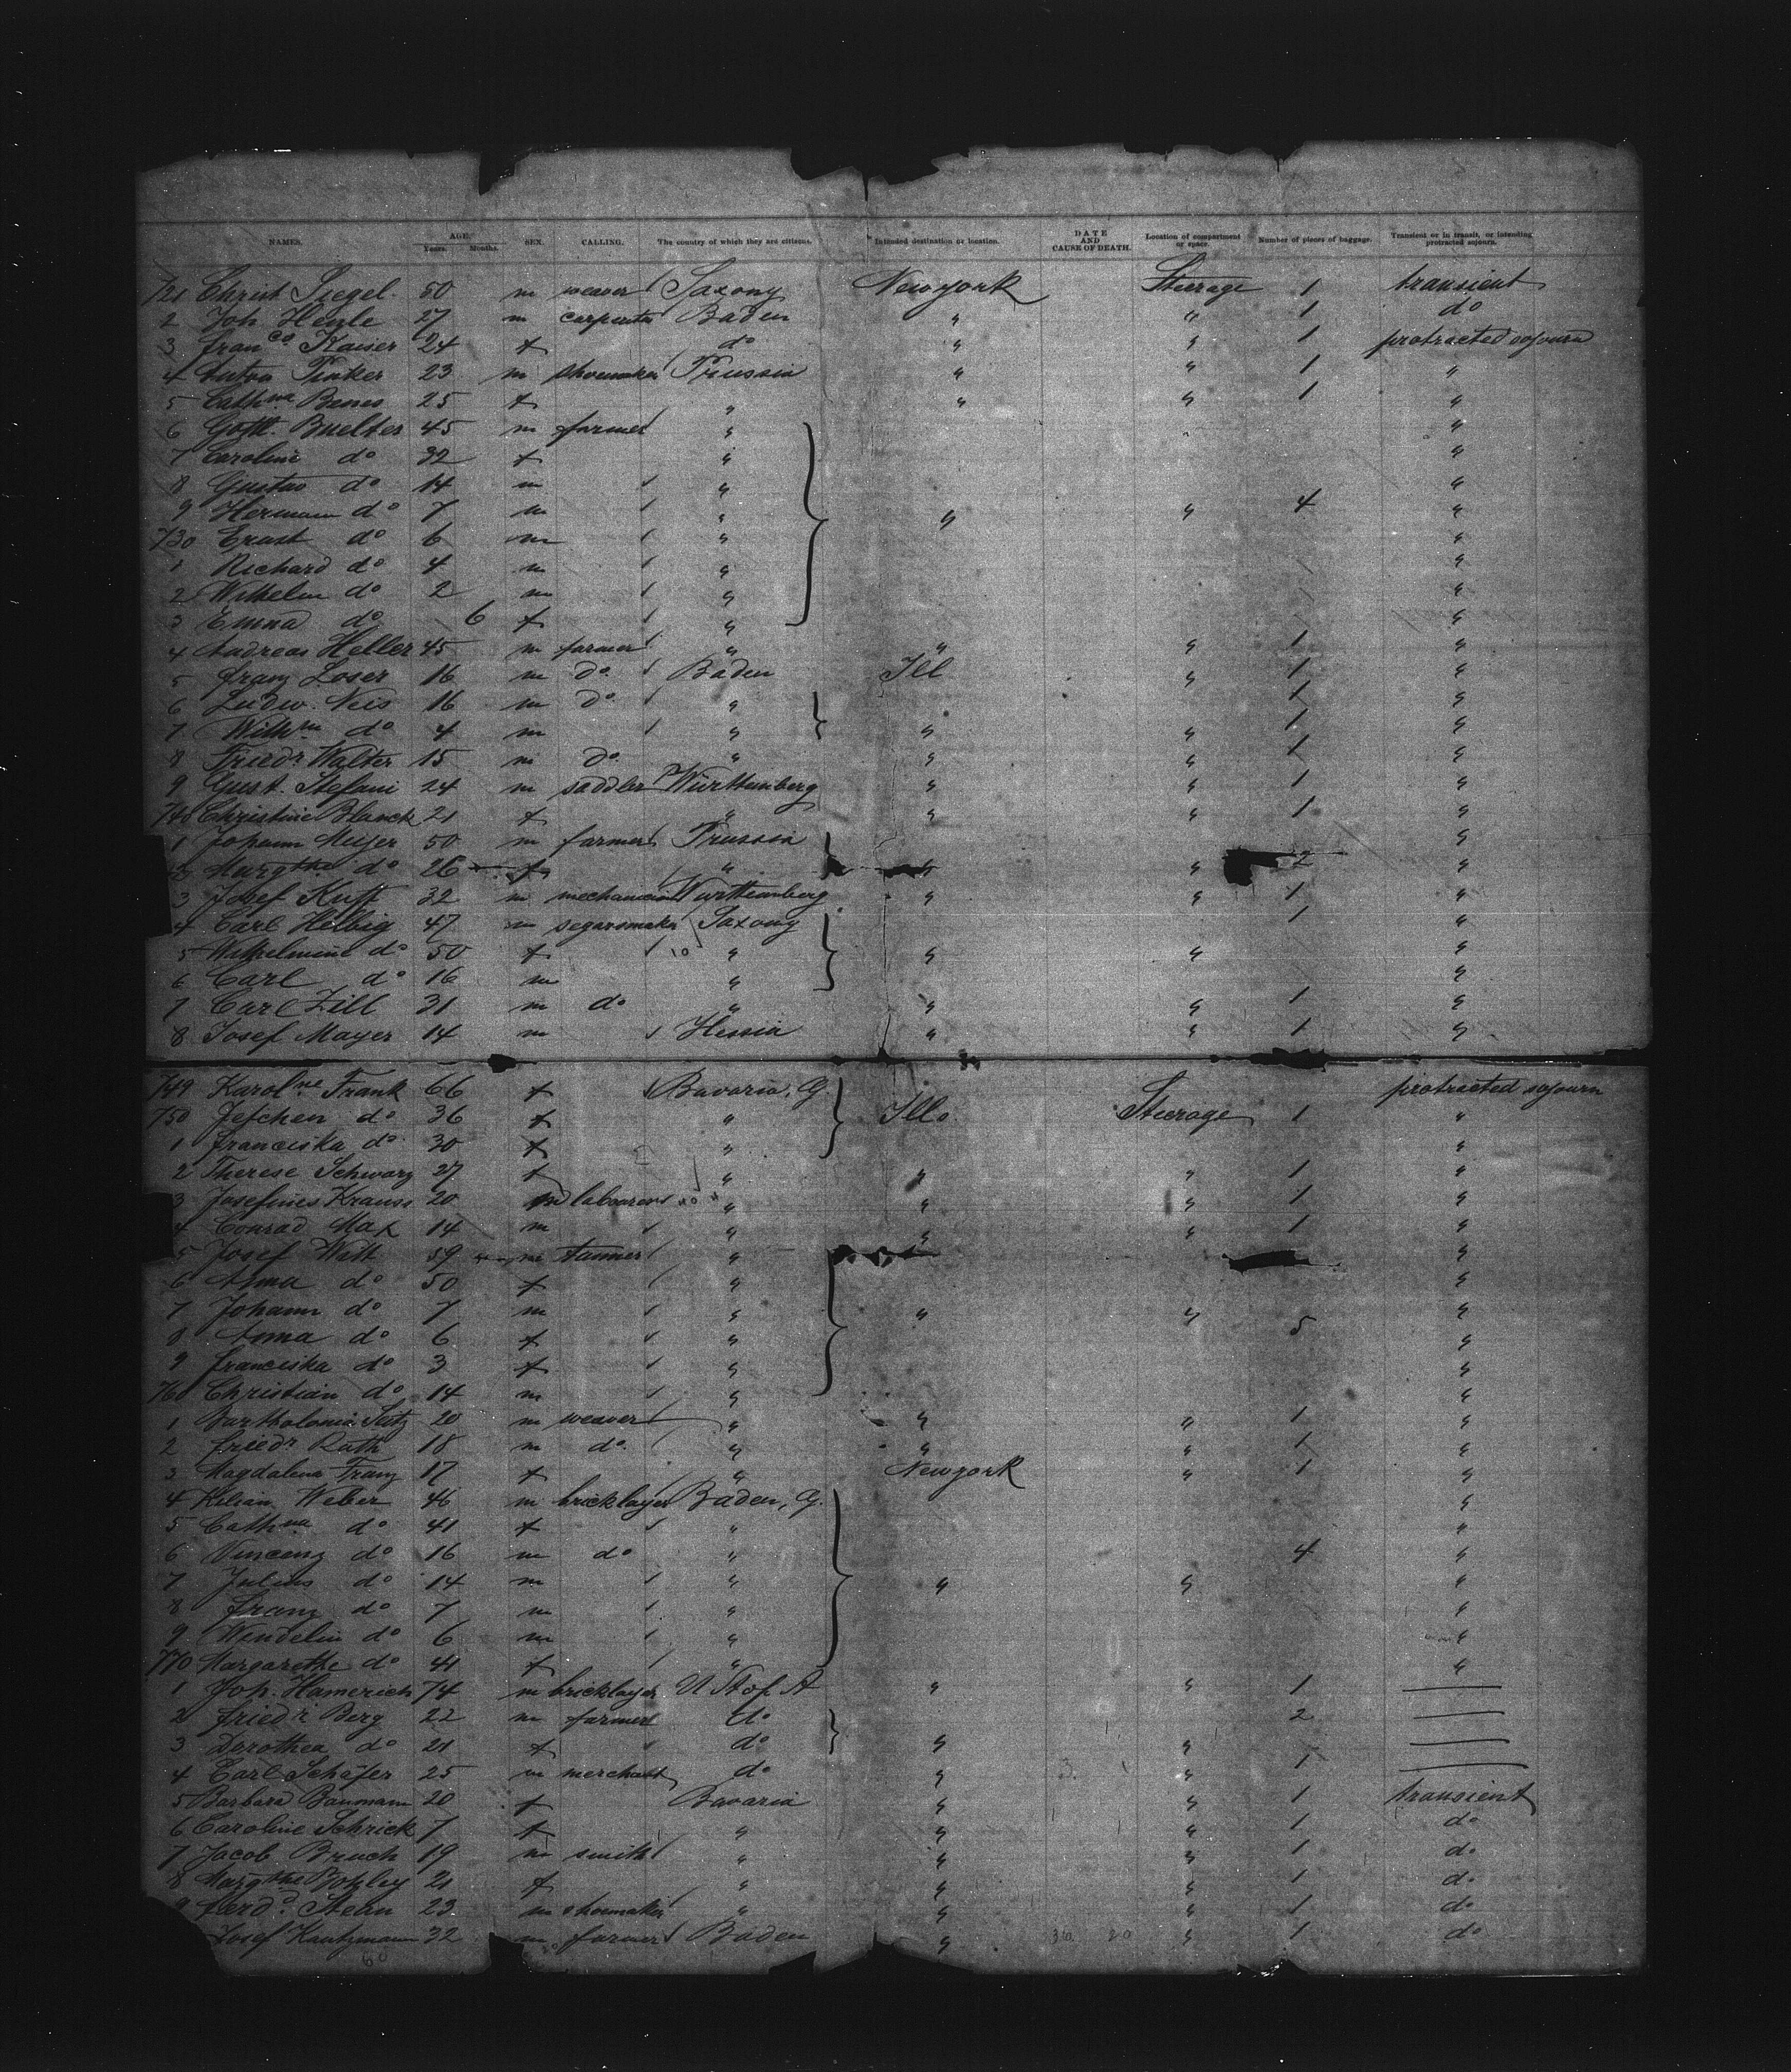 NAMES. AGE. Years. Months. SEX. CALLING. The country of which they are citizens. Intended destination or location. DATE AND CAUSE OF DEATH. Location of compartment or space. Number of pieces of baggage. Transient or in transit, or intending protracted sojourn.
721 Christ 50 m weaver Saxony Newyork Steerage 1 transient
2 Joh Henle 27 m carpenter Baden " " 1 do
3 Franco Kaiser 24 f do " " 1 protracted sojourn
4 Anton Pinker 23 m shoemaker Prussia " " 1 "
5 Cathna Benes 25 f " " " 1 "
6 Gottl. Buelter 45 m farmer " "
7 Caroline do 32 f " "
8 Gustav do 14 m " "
9 Hermann do 7 m " " " 4 "
730 Ernst do 6 m " "
1 Richard do 4 m " "
2 Wilhelm do 2 m " "
3 Emma do 6 f " "
4 Andreas Heller 45 m farmer " " " 1 "
5 Franz Loser 16 m do Baden Ill " 1 "
6 Ludw. Neis 16 m do " 1 "
7 Wilhm do 4 m " " " 1 "
8 Friedr Walter 15 m do " " " 1 "
9 Gust. Stefani 24 m saddler Württemberg " " 1 "
740 Christine Blanck 21 f " " " 1 "
1 Johann Meijer 50 m farmer Prussia "
2 Margthe do 26 f " " " 2 "
3 Josef 32 m mechanician Württemberg " " 1 "
4 Carl Helbig 47 m segarsmaker Saxony 1 "
5 Wilhelmine do 50 f " " " "
6 Carl do 16 m " "
7 Carl Zill 31 m do " " " 1 "
8 Josef Mayer 14 m Hessia " " 1 "
749 Karolne Frank 66 f Bavaria, G. protracted sojourn
750 Jefchen do 36 f " Ill. Steerage 1 "
1 Franciska do 30 f " "
2 Therese Schwarz 27 f " " " 1 "
3 Josefines Krauss 20 m labourers " " " 1 "
4 Conrad Max 14 m " " " 1 "
5 Josef 59 m tanner " "
6 Anna do 50 f " "
7 Johann do 7 m " " " 5 "
8 Anna do 6 f " "
9 Franciska do 3 f " "
760 Christian do 14 m " "
1 Seitz 20 m weaver " " " 1 "
2 Friedr Rath 18 m do " " " 1 "
3 Magdalena Franz 17 f " Newyork " 1 "
4 Kilian Weber 46 m bricklayer Baden, G. "
5 Cathna do 41 f " "
6 Vincenz do 16 m do " 4 "
7 Julius do 14 m " " " "
8 Franz do 7 m " "
9 Wendelin do 6 m " "
770 Margarethe do 41 f " "
1 Joh. Hamerich 74 m bricklayer U St of A " " 1
2 Friedr Berg 22 m farmer do 2
3 Dorothea do 21 f do " "
4 Carl Schäfer 25 m merchant do " " 1
5 Barbara Baumann 20 f Bavaria " " 1 transient
6 Caroline Schrick 7 f " " " 1 do
7 Jacob Bruch 19 m smith " " " 1 do
8 Margthe 21 f " " " 1 do
9 Ferdd 23 m shoemaker " " " 1 do
Josef Kautzmann 32 m farmer Baden " " 1 do